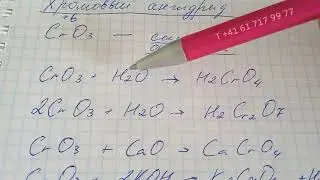 Хромовый ангидрид
+6
CrO₃ —
T +41 61 717 99 77
CrO₃ + H₂O → H₂CrO₄
2CrO₃ + H₂O → H₂Cr₂O₇
CrO₃ + CaO → CaCrO₄
CrO₃ + 2KOH →